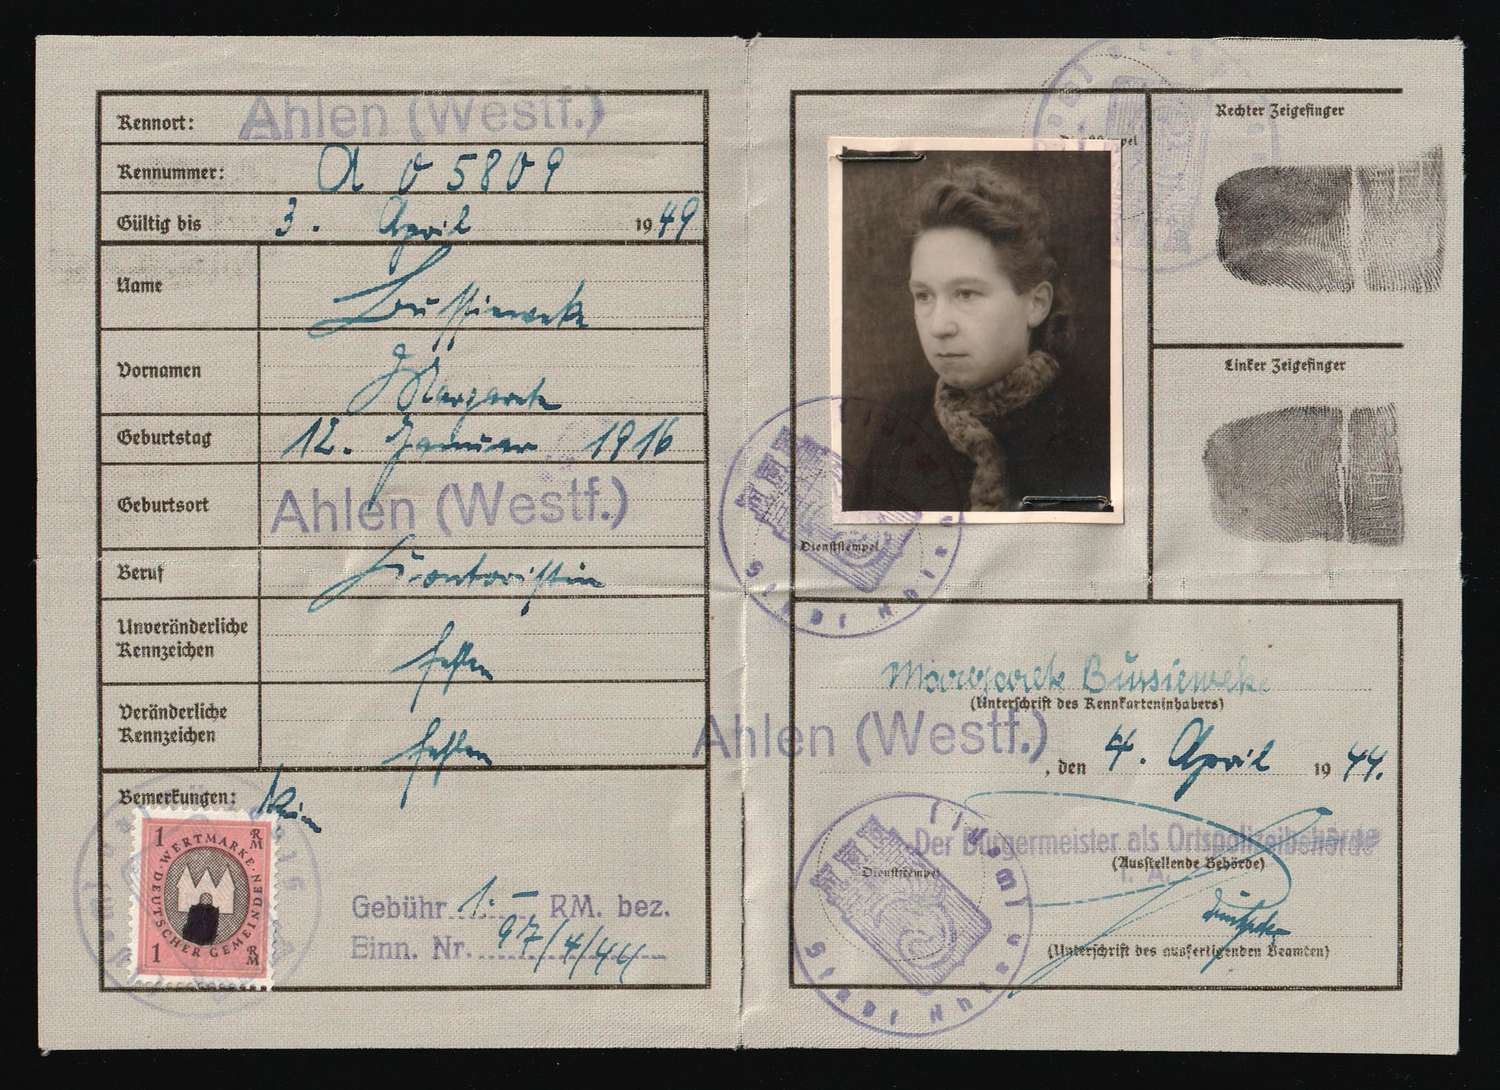 Kennort: Ahlen (Westf.)
Kennummer: A 05809
Gültig bis 3. April 1949
Name Bussieweke
Vornamen Margarete
Geburtstag 12. Januar 1916
Geburtsort Ahlen (Westf.)
Beruf Kontoristin
Unveränderliche
Kennzeichen fehlen
Veränderliche
Kennzeichen fehlen
Bemerkungen: keine
1 RM
WERTMARKE
DEUTSCHER GEMEINDEN
1 RM
Gebühr 1.- RM. bez.
Einn. Nr. 97/4/44
Dienststempel
Rechter Zeigefinger
Linker Zeigefinger
Dienststempel
Stadt Ahlen
Margarete Bussieweke
(Unterschrift des Kennkarteninhabers)
Ahlen (Westf.), den 4. April 1944.
Der Bürgermeister als Ortspolizeibehörde
(Ausstellende Behörde)
I. A.
Dienststempel
Stadt Ahlen
(Unterschrift des ausfertigenden Beamten)